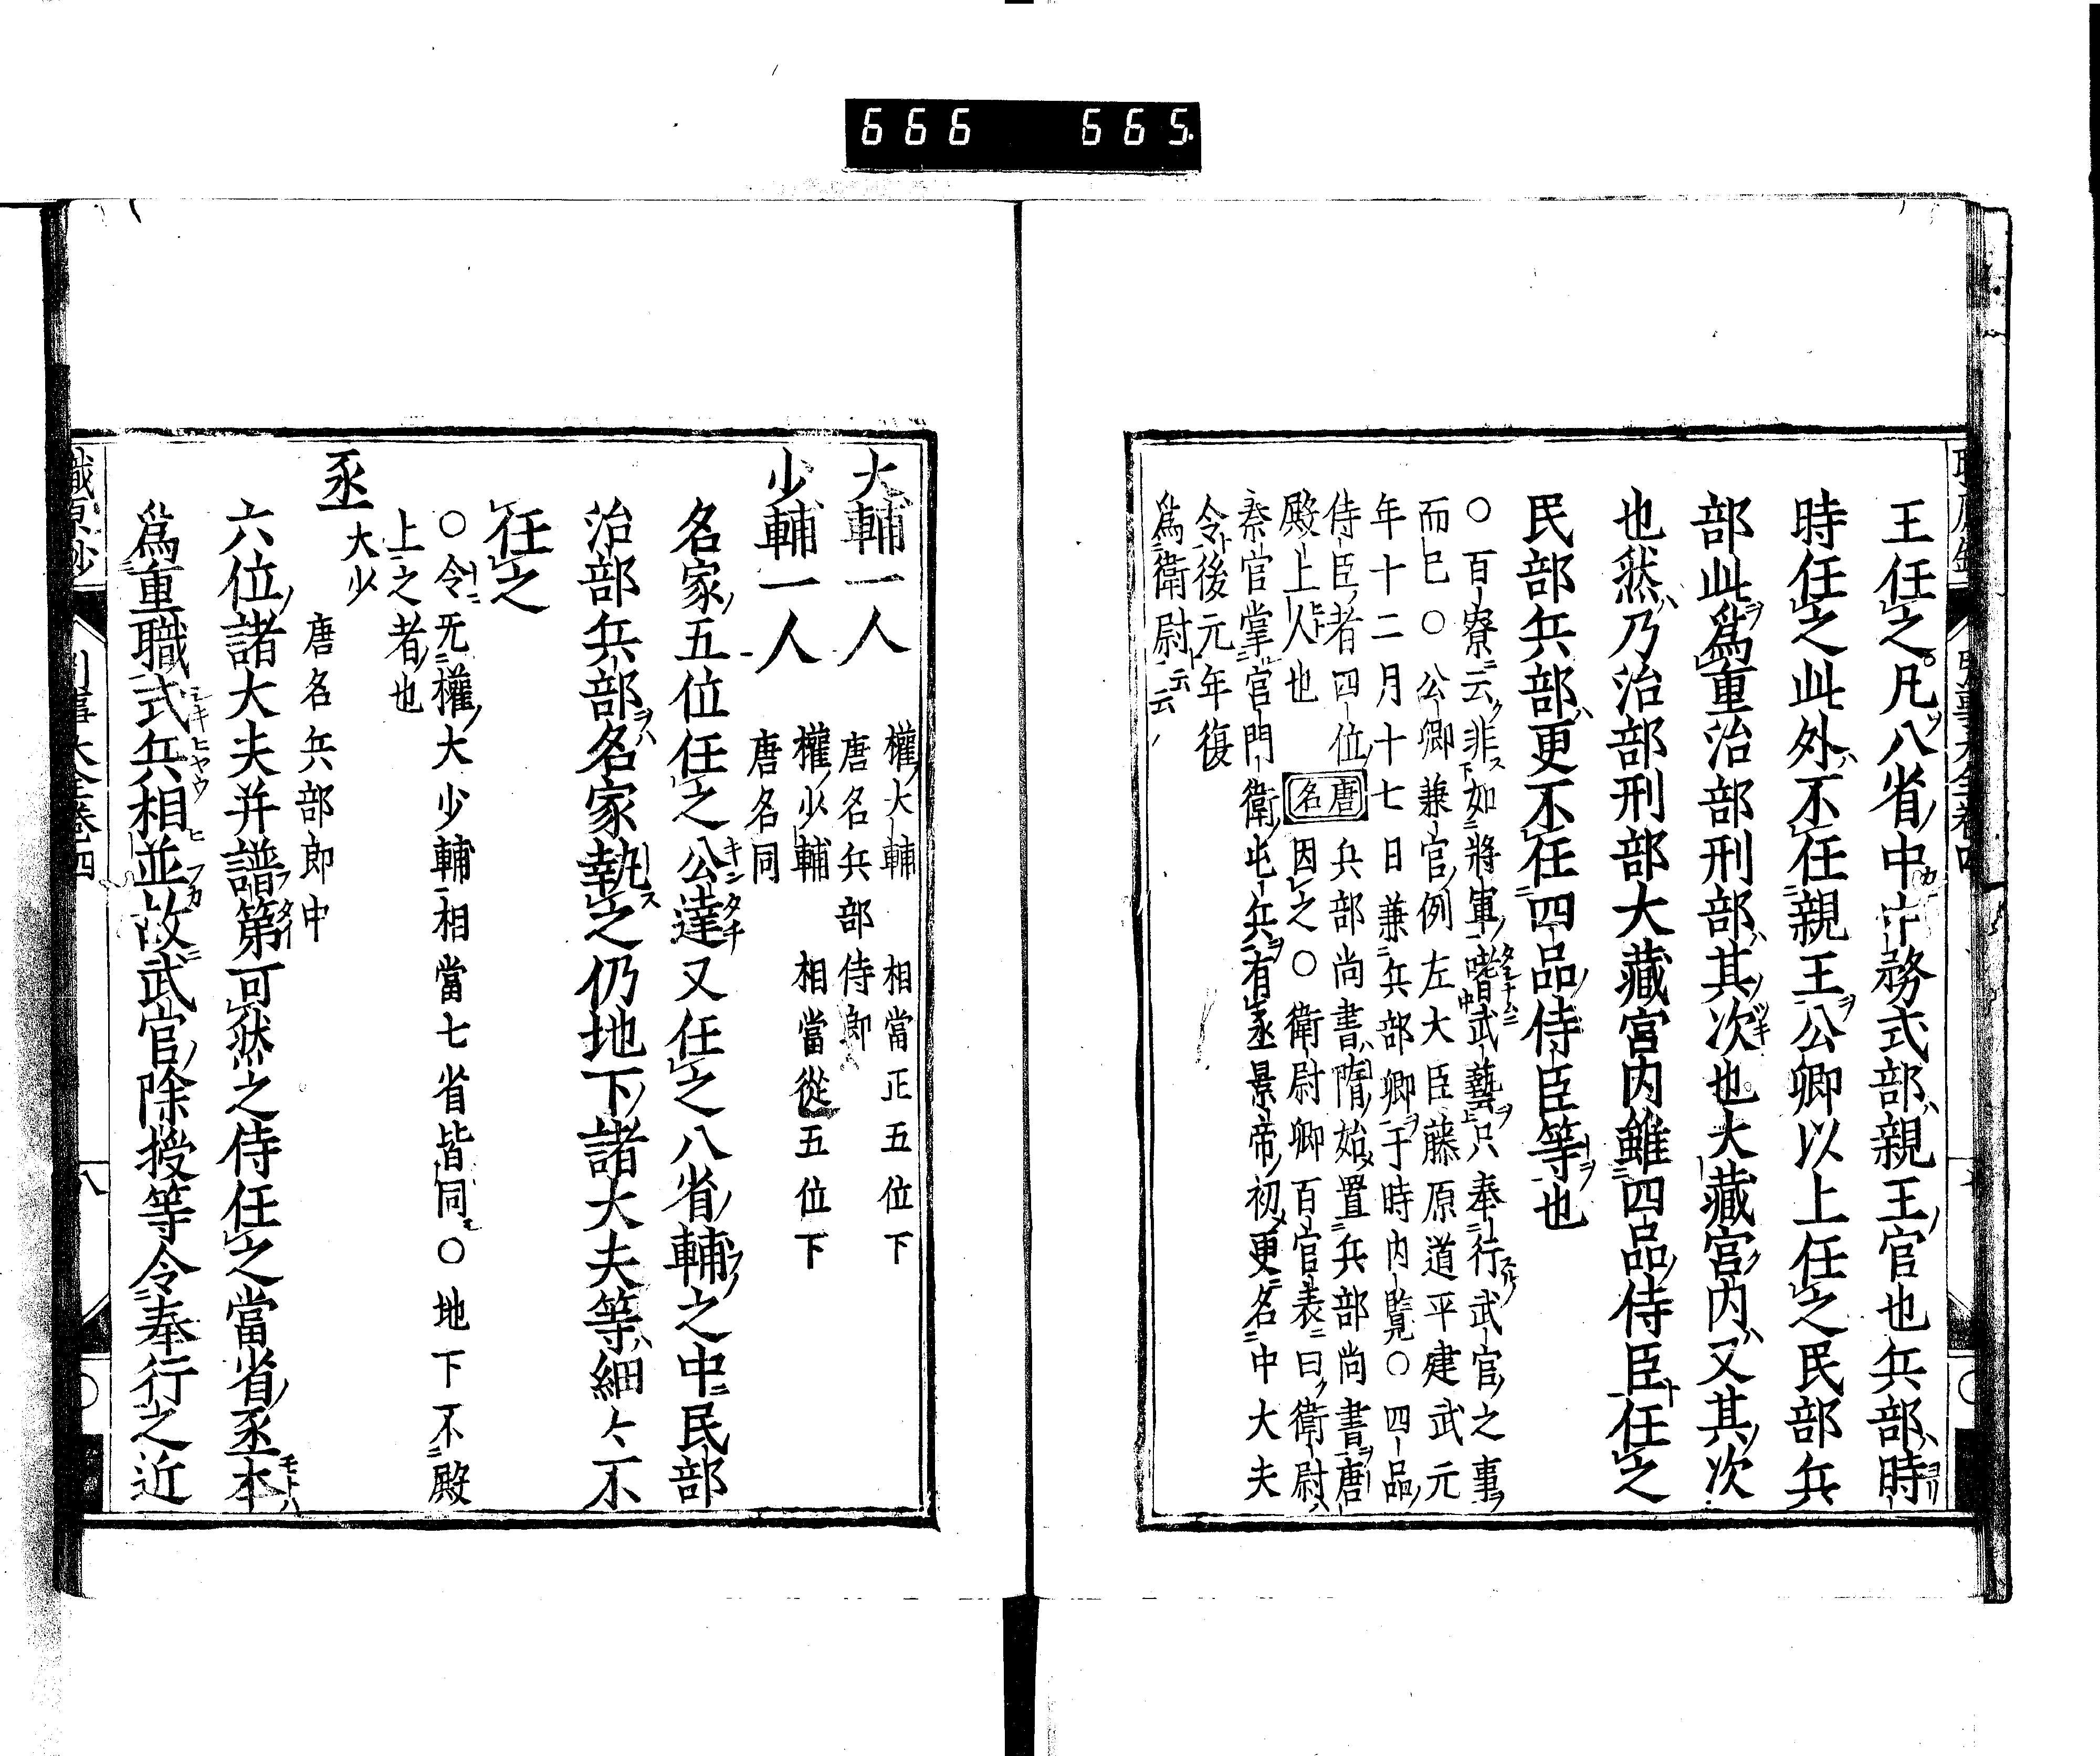 666 665
王任之凡八省中中務式部親王官也兵部時
時任之此外不任親王公卿以上任之民部兵
部此爲重治部刑部其次也大藏宮内又其次
也然乃治部刑部大藏宮内雖四品侍臣任之
民部兵部更不任四品侍臣等也
○百寮云非如將軍嗜武藝只奉行武官之事
而已○公卿兼官例左大臣藤原道平建武元
年十二月十七日兼兵部卿于時内覽○四品
侍臣者四位 唐 兵部尚書隋始置兵部尚書唐
殿上人也 名 因之○衛尉卿百官表曰衛尉
秦官掌宮門衛屯兵有丞景帝初更名中大夫
令後元年復
爲衛尉云云
大輔一人 權大輔 相當正五位下
唐名兵部侍郎
少輔一人 權少輔 相當從五位下
唐名同
名家五位任之公達又任之八省輔之中民部
治部兵部名家執之仍地下諸大夫等細々不
任之
○令无權大少輔相當七省皆同○地下不殿
上之者也
丞 大少
唐名兵部郎中
六位諸大夫并譜第可然之侍任之當省丞本
爲重職式兵相並故武官除授等令奉行之近
職原抄
八